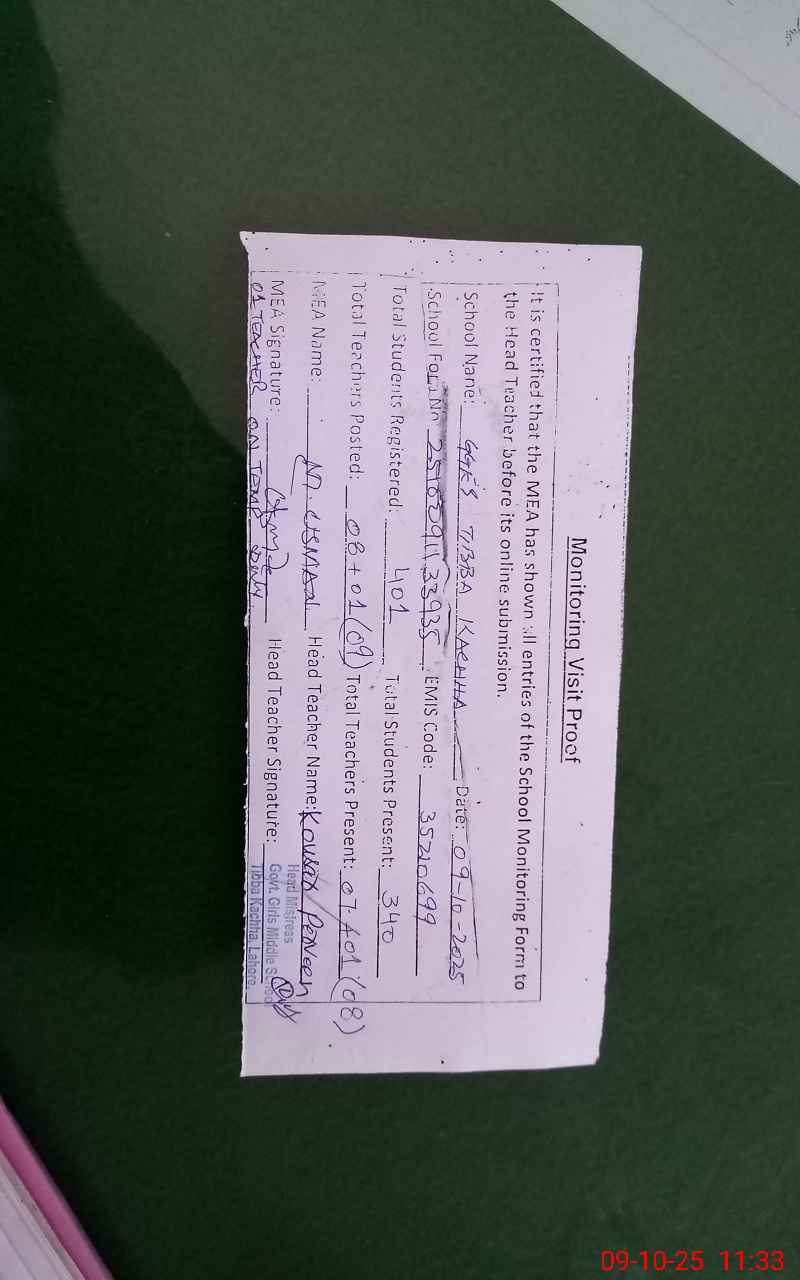 Monitoring Visit Proof
It is certified that the MEA has shown all entries of the School Monitoring Form to
the Head Teacher before its online submission.
School Name: GGES TIBBA KACHHA Date: 09-10-2025
School Form No EMIS Code: 35210699
Total Students Registered: 401 Total Students Present: 340
Total Teachers Posted: 08+01(09) Total Teachers Present: 07+01(08)
MEA Name: M. USMAN Head Teacher Name: Kousar Perveen
MEA Signature: Head Teacher Signature:
01 TEACHER ON TEMP DUTY
Head Mistress
Govt. Girls Middle School
Tibba Kachha, Lahore.
09-10-25 11:33